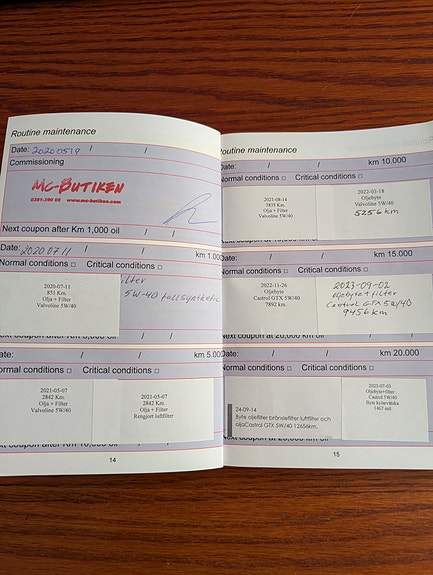 Routine maintenance
Date: 20200519 / /
Commissioning
MC-BUTIKEN
0381-390 00 www.mc-butiken.com
Next coupon after Km 1,000 oil
Date: 2020 07 11 / / km 1.000
Normal conditions □ Critical conditions □
filter
5W-40 fullsynthetic
2020-07-11
851 Km.
Olja + Filter
Valvoline 5W/40
/ /
Date: / / km 5.000
Normal conditions □ Critical conditions □
2021-05-07
2842 Km.
Olja + Filter
Valvoline 5W/40
2021-05-07
2842 Km.
Olja + Filter
Rengjort luftfilter
Next coupon after Km 10,000 oil
14
Routine maintenance
Date: / / km 10.000
Normal conditions □ Critical conditions □
2021-08-14
3835 Km.
Olja + Filter
Valvoline 5W/40
2022-03-18
Oljebyte
Valvoline 5W/40
5256 km
Date: / / km 15.000
Normal conditions □ Critical conditions □
2022-11-26
Oljebyte
Castrol GTX 5W/40
7892 km.
2023-09-02
oljebyte + filter
Castrol GTX 5W/40
9456 km
Next coupon at 20,000 km
Date: / / km 20.000
Normal conditions □ Critical conditions □
24-09-14
Byte oljefilter bränslefilter luftfilter och
oljaCastrol GTX 5W/40 12656km.
2025-07-03
Oljebyte+filter
Castrol 5W/40
Byte kylarvätska
1467 mil
Next coupon at 25,000 km
15